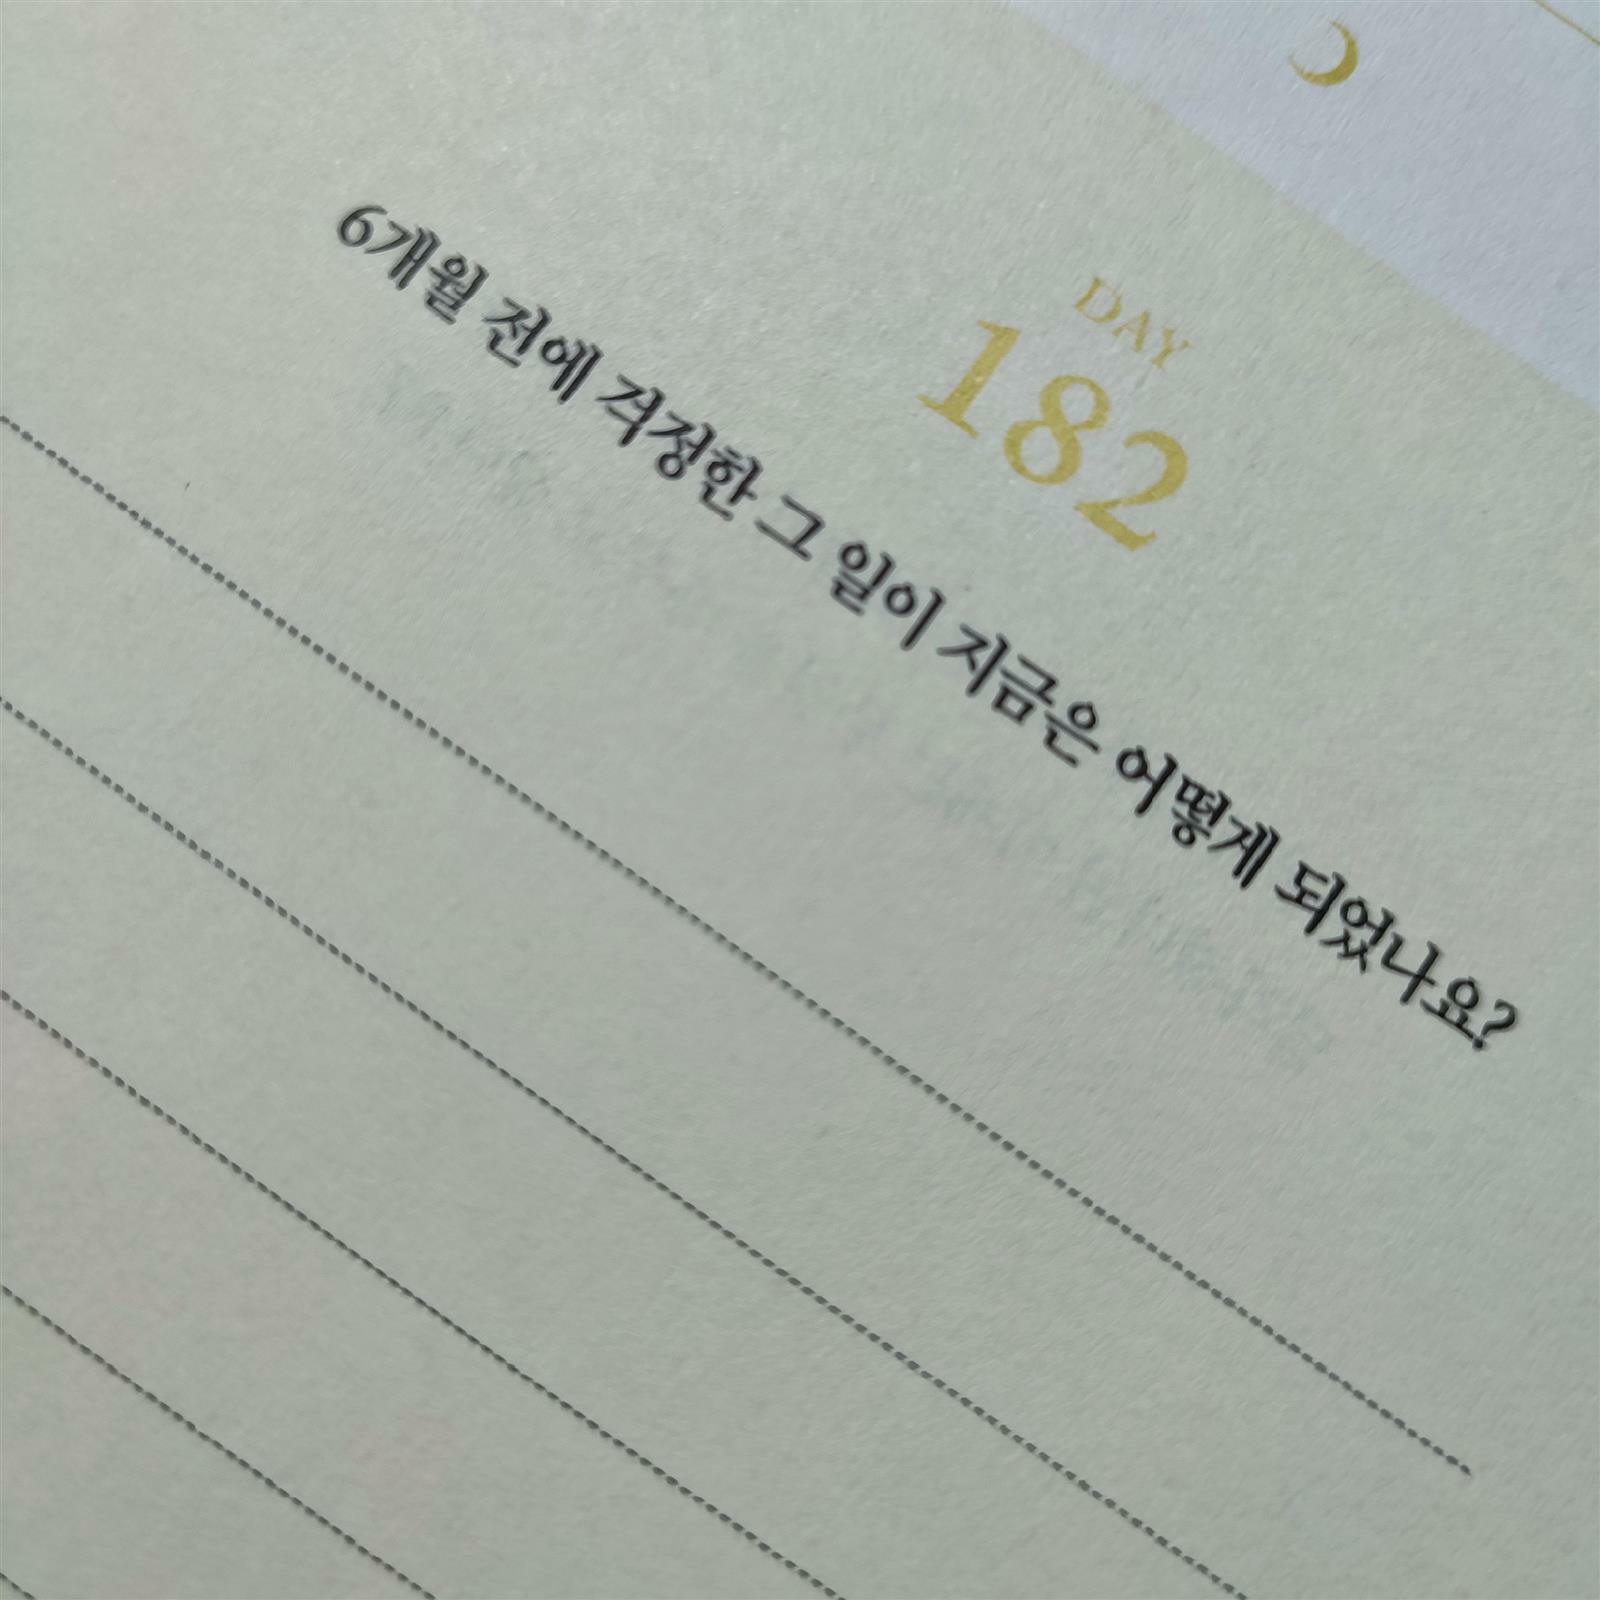 DAY
182
6개월 전에 걱정한 그 일이 지금은 어떻게 되었나요?